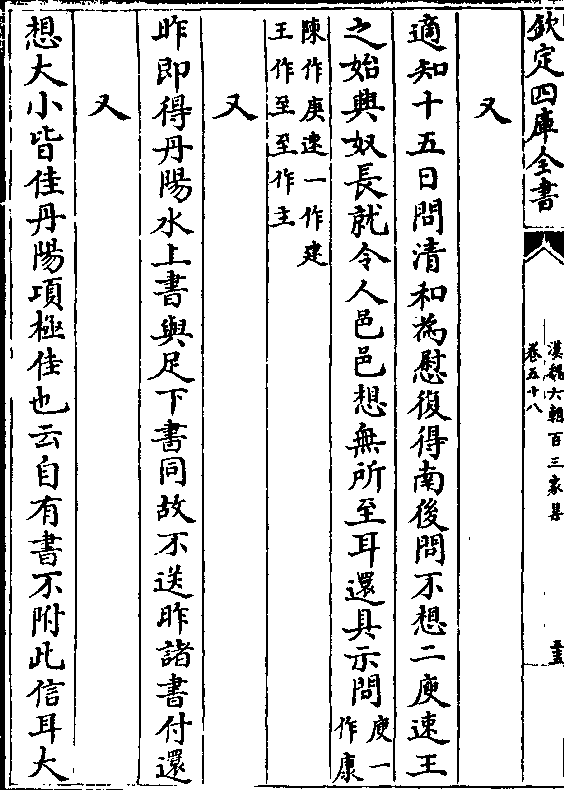 欽定四庫全書
漢魏六朝百三家集
卷五十八
又
適知十五日問清和為慰復得南後問不想二庾速王
之始興奴長就令人邑邑想無所至耳還具示問庾一
作康
陳作庾速一作建
王作至至作主
又
昨即得丹陽水上書與足下書同故不送昨諸書付還
又
想大小皆佳丹陽項極佳也云自有書不附此信耳大